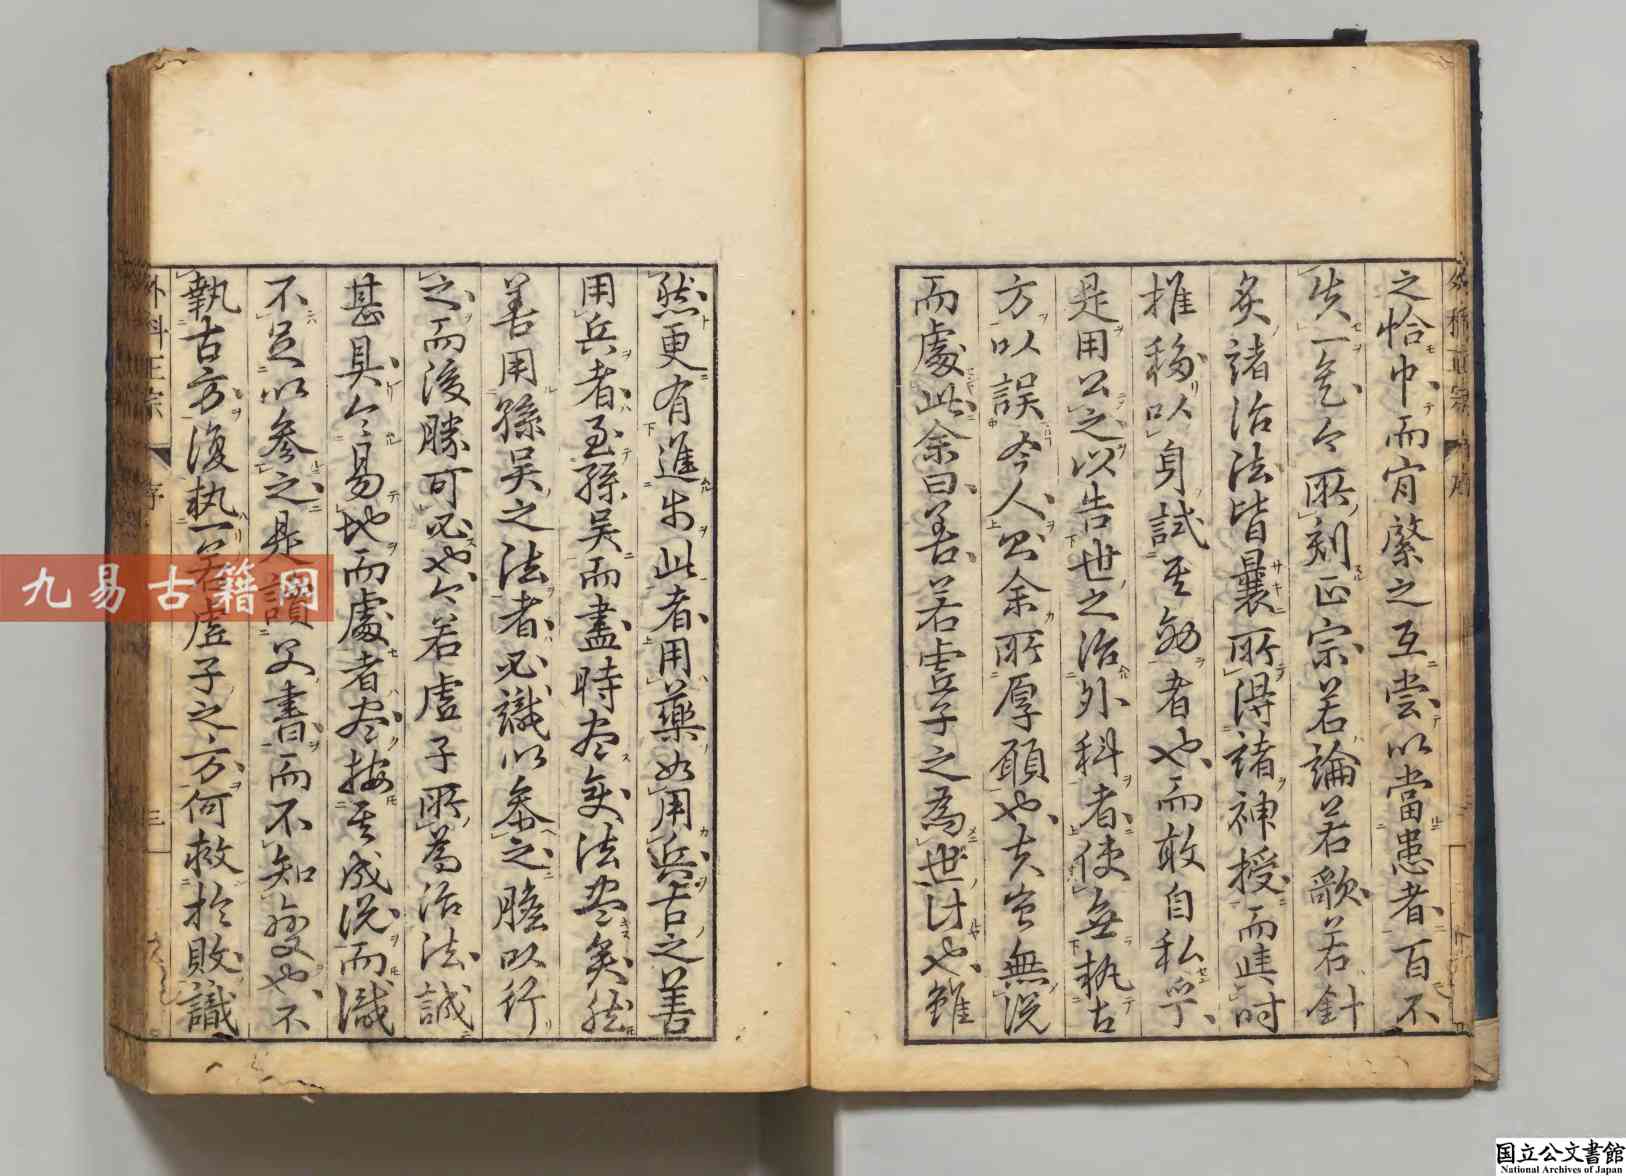 之恰巾而宵縈之互嘗以當患者百不
失一乞今所刻正宗若論若歌若針
灸諸治法皆曩所得諸神授而時時
推移以身試其効者也而敢自私乎
是用公之以告世之治外科者使無執古
方以誤今人則余所厚願也夫無說
而處此余曰善若虛子之為世計也雖
然更有進於此者用藥如用兵古之善
用兵者至孫吳而盡時然矣法盡矣然
善用孫吳之法者必識以參之膽以行
之而後勝可必也今若虛子所為治法誠
甚具今易地而處者盡按其成說而識
不足以參之是讀父書而不知變也不
執古方復執一若虛子之方何救於敗識
外科正宗
序
三
九易古籍网
国立公文書館
National Archives of Japan